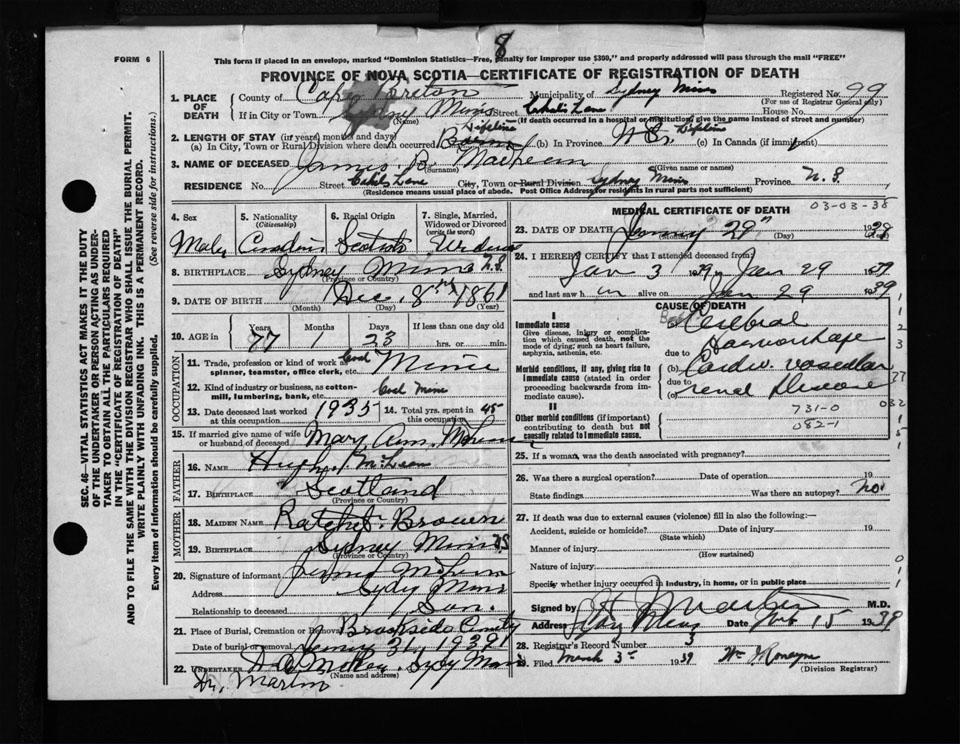 8
FORM 6
This form if placed in an envelope, marked "Dominion Statistics—Free, penalty for improper use $300," and properly addressed will pass through the mail "FREE"
PROVINCE OF NOVA SCOTIA—CERTIFICATE OF REGISTRATION OF DEATH
SEC. 46—VITAL STATISTICS ACT MAKES IT THE DUTY
OF THE UNDERTAKER OR PERSON ACTING AS UNDER-
TAKER TO OBTAIN ALL THE PARTICULARS REQUIRED
IN THE "CERTIFICATE OF REGISTRATION OF DEATH"
AND TO FILE THE SAME WITH THE DIVISION REGISTRAR WHO SHALL ISSUE THE BURIAL PERMIT.
WRITE PLAINLY WITH UNFADING INK. THIS IS A PERMANENT RECORD.
Every item of information should be carefully supplied. (See reverse side for instructions.)
1. PLACE OF DEATH
County of Cape Breton Municipality of Sydney Mines Registered No. 99
(For use of Registrar General only)
If in City or Town Sydney Mines Street Lane House No.
(Name) (If death occurred in a hospital or institution, give the name instead of street and number)
2. LENGTH OF STAY (in years, months and days)
(a) In City, Town or Rural Division where death occurred Lifetime (b) In Province Lifetime (c) In Canada (if immigrant)
3. NAME OF DECEASED James B. MacLean
(Surname) (Given name or names)
RESIDENCE No. Street Lane City, Town or Rural Division Sydney Mines Province N.S.
(Residence means usual place of abode. Post Office Address for residents in rural parts not sufficient)
4. Sex Male
5. Nationality (Citizenship) Canadian
6. Racial Origin Scotch
7. Single, Married, Widowed or Divorced (write the word) Widower
8. BIRTHPLACE Sydney Mines N.S.
(Province or Country)
9. DATE OF BIRTH Dec. 8 1861
(Month) (Day) (Year)
10. AGE in Years 77 Months 1 Days 23 If less than one day old hrs. or min.
OCCUPATION
11. Trade, profession or kind of work as spinner, teamster, office clerk, etc. Coal Miner
12. Kind of industry or business, as cotton-mill, lumbering, bank, etc. Coal Mine
13. Date deceased last worked at this occupation 1935 14. Total yrs. spent in this occupation 45
15. If married give name of wife or husband of deceased Mary Ann McLean
FATHER
16. NAME Hugh McLean
17. BIRTHPLACE Scotland
(Province or Country)
MOTHER
18. MAIDEN NAME Rachel Brown
19. BIRTHPLACE Sydney Mines N.S
(Province or Country)
20. Signature of informant McLean
Address Sydney Mines
Relationship to deceased Son.
21. Place of Burial, Cremation or Removal Brookside Cemetery
Date of burial or removal January 31, 1939
22. UNDERTAKER Sydney Mines
(Name and address)
Dr. Martin
MEDICAL CERTIFICATE OF DEATH
03-03-38
23. DATE OF DEATH January 29 19
(Month) (Day)
24. I HEREBY CERTIFY that I attended deceased from
Jan 3 1939 Jan 29 1939
and last saw h im alive on Jan 29 1939
CAUSE OF DEATH
I
Immediate cause
Give disease, injury or complication which caused death, not the mode of dying; such as heart failure, asphyxia, asthenia, etc.
(a) Cerebral Haemorrhage
due to
Morbid conditions, if any, giving rise to immediate cause (stated in order proceeding backwards from immediate cause).
(b) Cardio. vascular
due to
(c) renal Disease
II
Other morbid conditions (if important) contributing to death but not causally related to immediate cause.
731-0
082-1
25. If a woman, was the death associated with pregnancy?
26. Was there a surgical operation? Date of operation 19
State findings Was there an autopsy? No.
27. If death was due to external causes (violence) fill in also the following:—
Accident, suicide or homicide? Date of injury 19
(State which)
Manner of injury
(How sustained)
Nature of injury
Specify whether injury occurred in industry, in home, or in public place
Signed by M.D.
Address Date 15 1939
28. Registrar's Record Number 3
29. Filed March 3 1939 Wm
(Division Registrar)